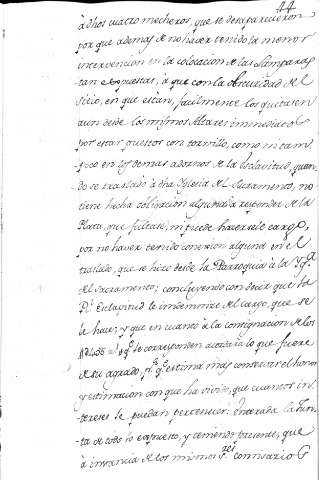 44
à dhos cuatro mecheros, que se desaparecieron
por que ademas de no haver tenido la menor
intervencion en la colocacion de las Lamparas
tan expuestas, à que con la obscuridad del
Sitio, en que estan, facilmente los quitasen
aun desde los mismos Altares immediatos
por estar puestos con tornillo, como ni tam-
poco en los demas adornos de la Esclavitud, quan-
do se trasladò à dha Iglesia del Sacramento, no
tiene hecha obligacion alguna de responder de la
Plata, que faltase, ni puede hacersele cargo,
por no haver tenido conexion alguna en el
traslado, que se hizo desde la Parroquia à la Ygª
del Sacramento; concluyendo con decir que la
Rl Esclavitud le indemnize del cargo, que se
le hace; y que en cuanto à la consignacion de los
rs vn qe le corresponden acordarà lo que fuere
de su agrado, pr qe estima mas conservar el honor
y estimacion con que ha vivido, que cuantos in-
tereses le puedan pertenecer. Enterada la Jun-
ta de todo lo expuesto, y teniendo presente, que
à instancia de los mismos Sres Comisarios